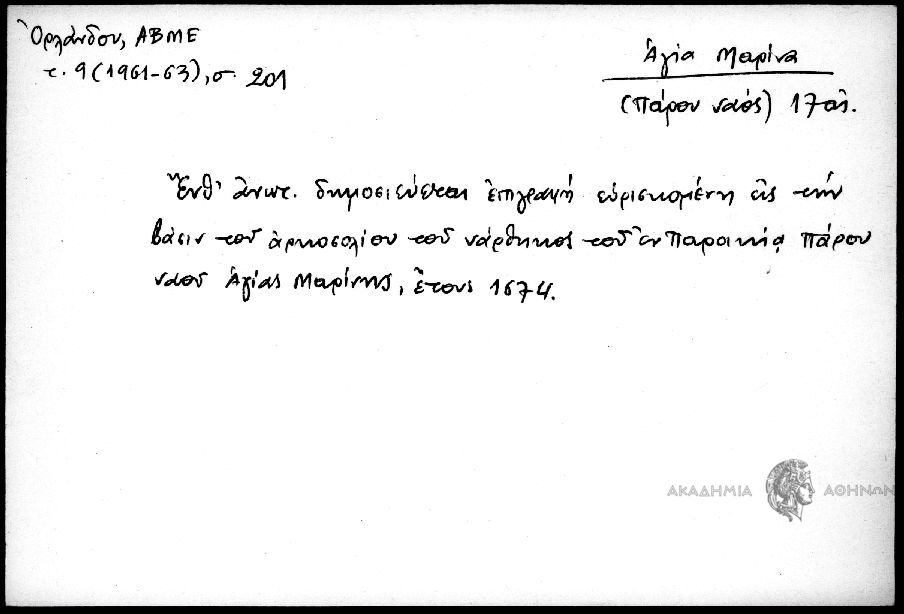 Ὀρλάνδου, ΑΒΜΕ
τ. 9 (1961-63), σ. 201
Ἁγία Μαρίνα
(Πάρου ναός) 17 αἰ.
Ἔνθ' ἀνωτ. δημοσιεύεται ἐπιγραφή εὑρισκομένη εἰς τήν
βάσιν τοῦ ἀρκοσολίου τοῦ νάρθηκος τοῦ ἐν Παροικίᾳ Πάρου
ναοῦ Ἁγίας Μαρίνης, ἔτους 1674.
ΑΚΑΔΗΜΙΑ ΑΘΗΝΩΝ